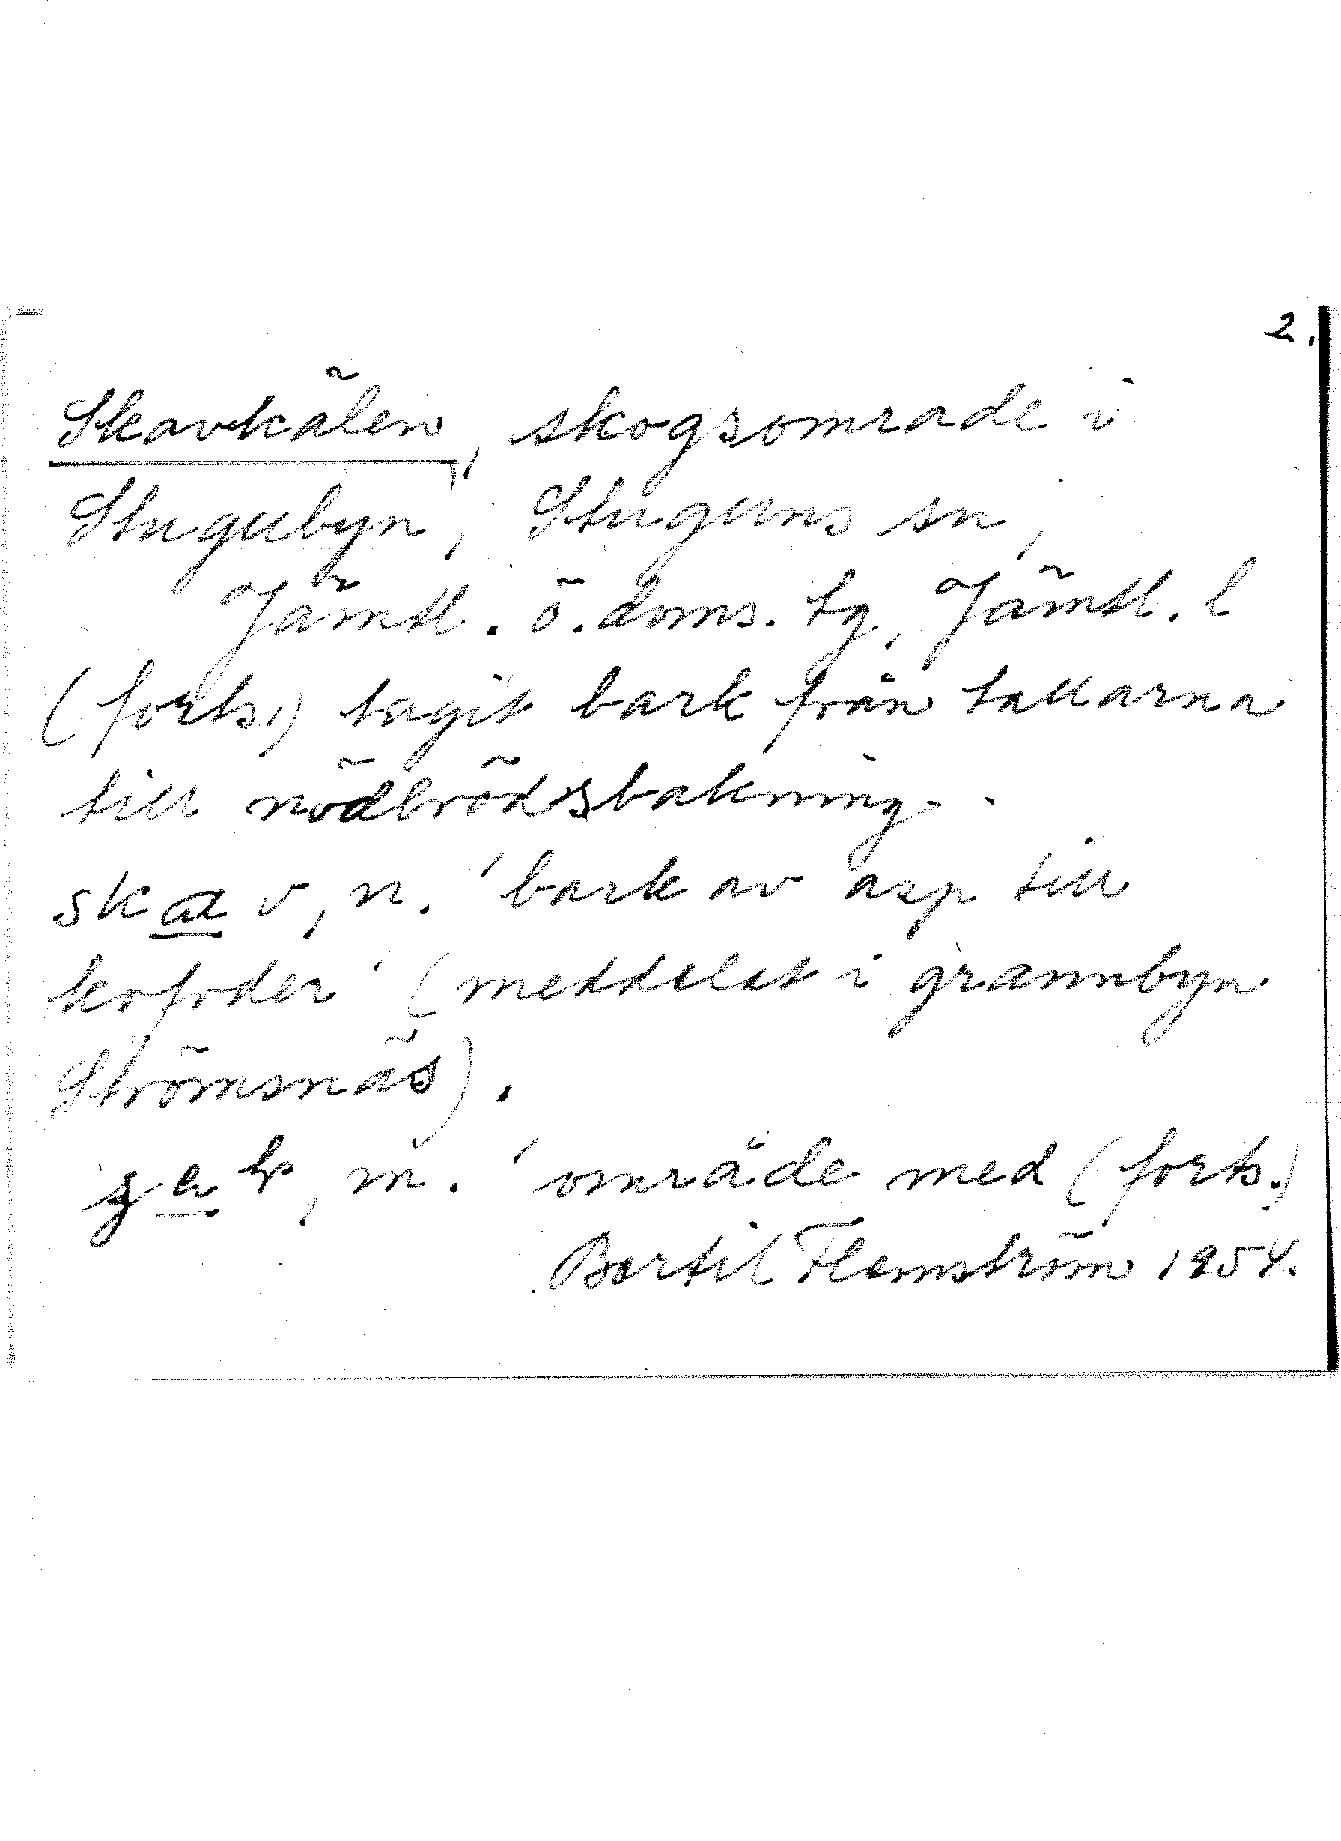 2.
Skavkälen, skogsområde i
Stugubyn, Stuguns sn,
Jämtl. ö. doms. tg, Jämtl. l
(forts.) tagit bark från tallarna
till nödbrödsbakning.
skav, n. 'bark av asp till
kofoder' (meddelat i grannbyn
Strömsnäs).
m. 'område med (forts.)
Bertil Flemström 1954.